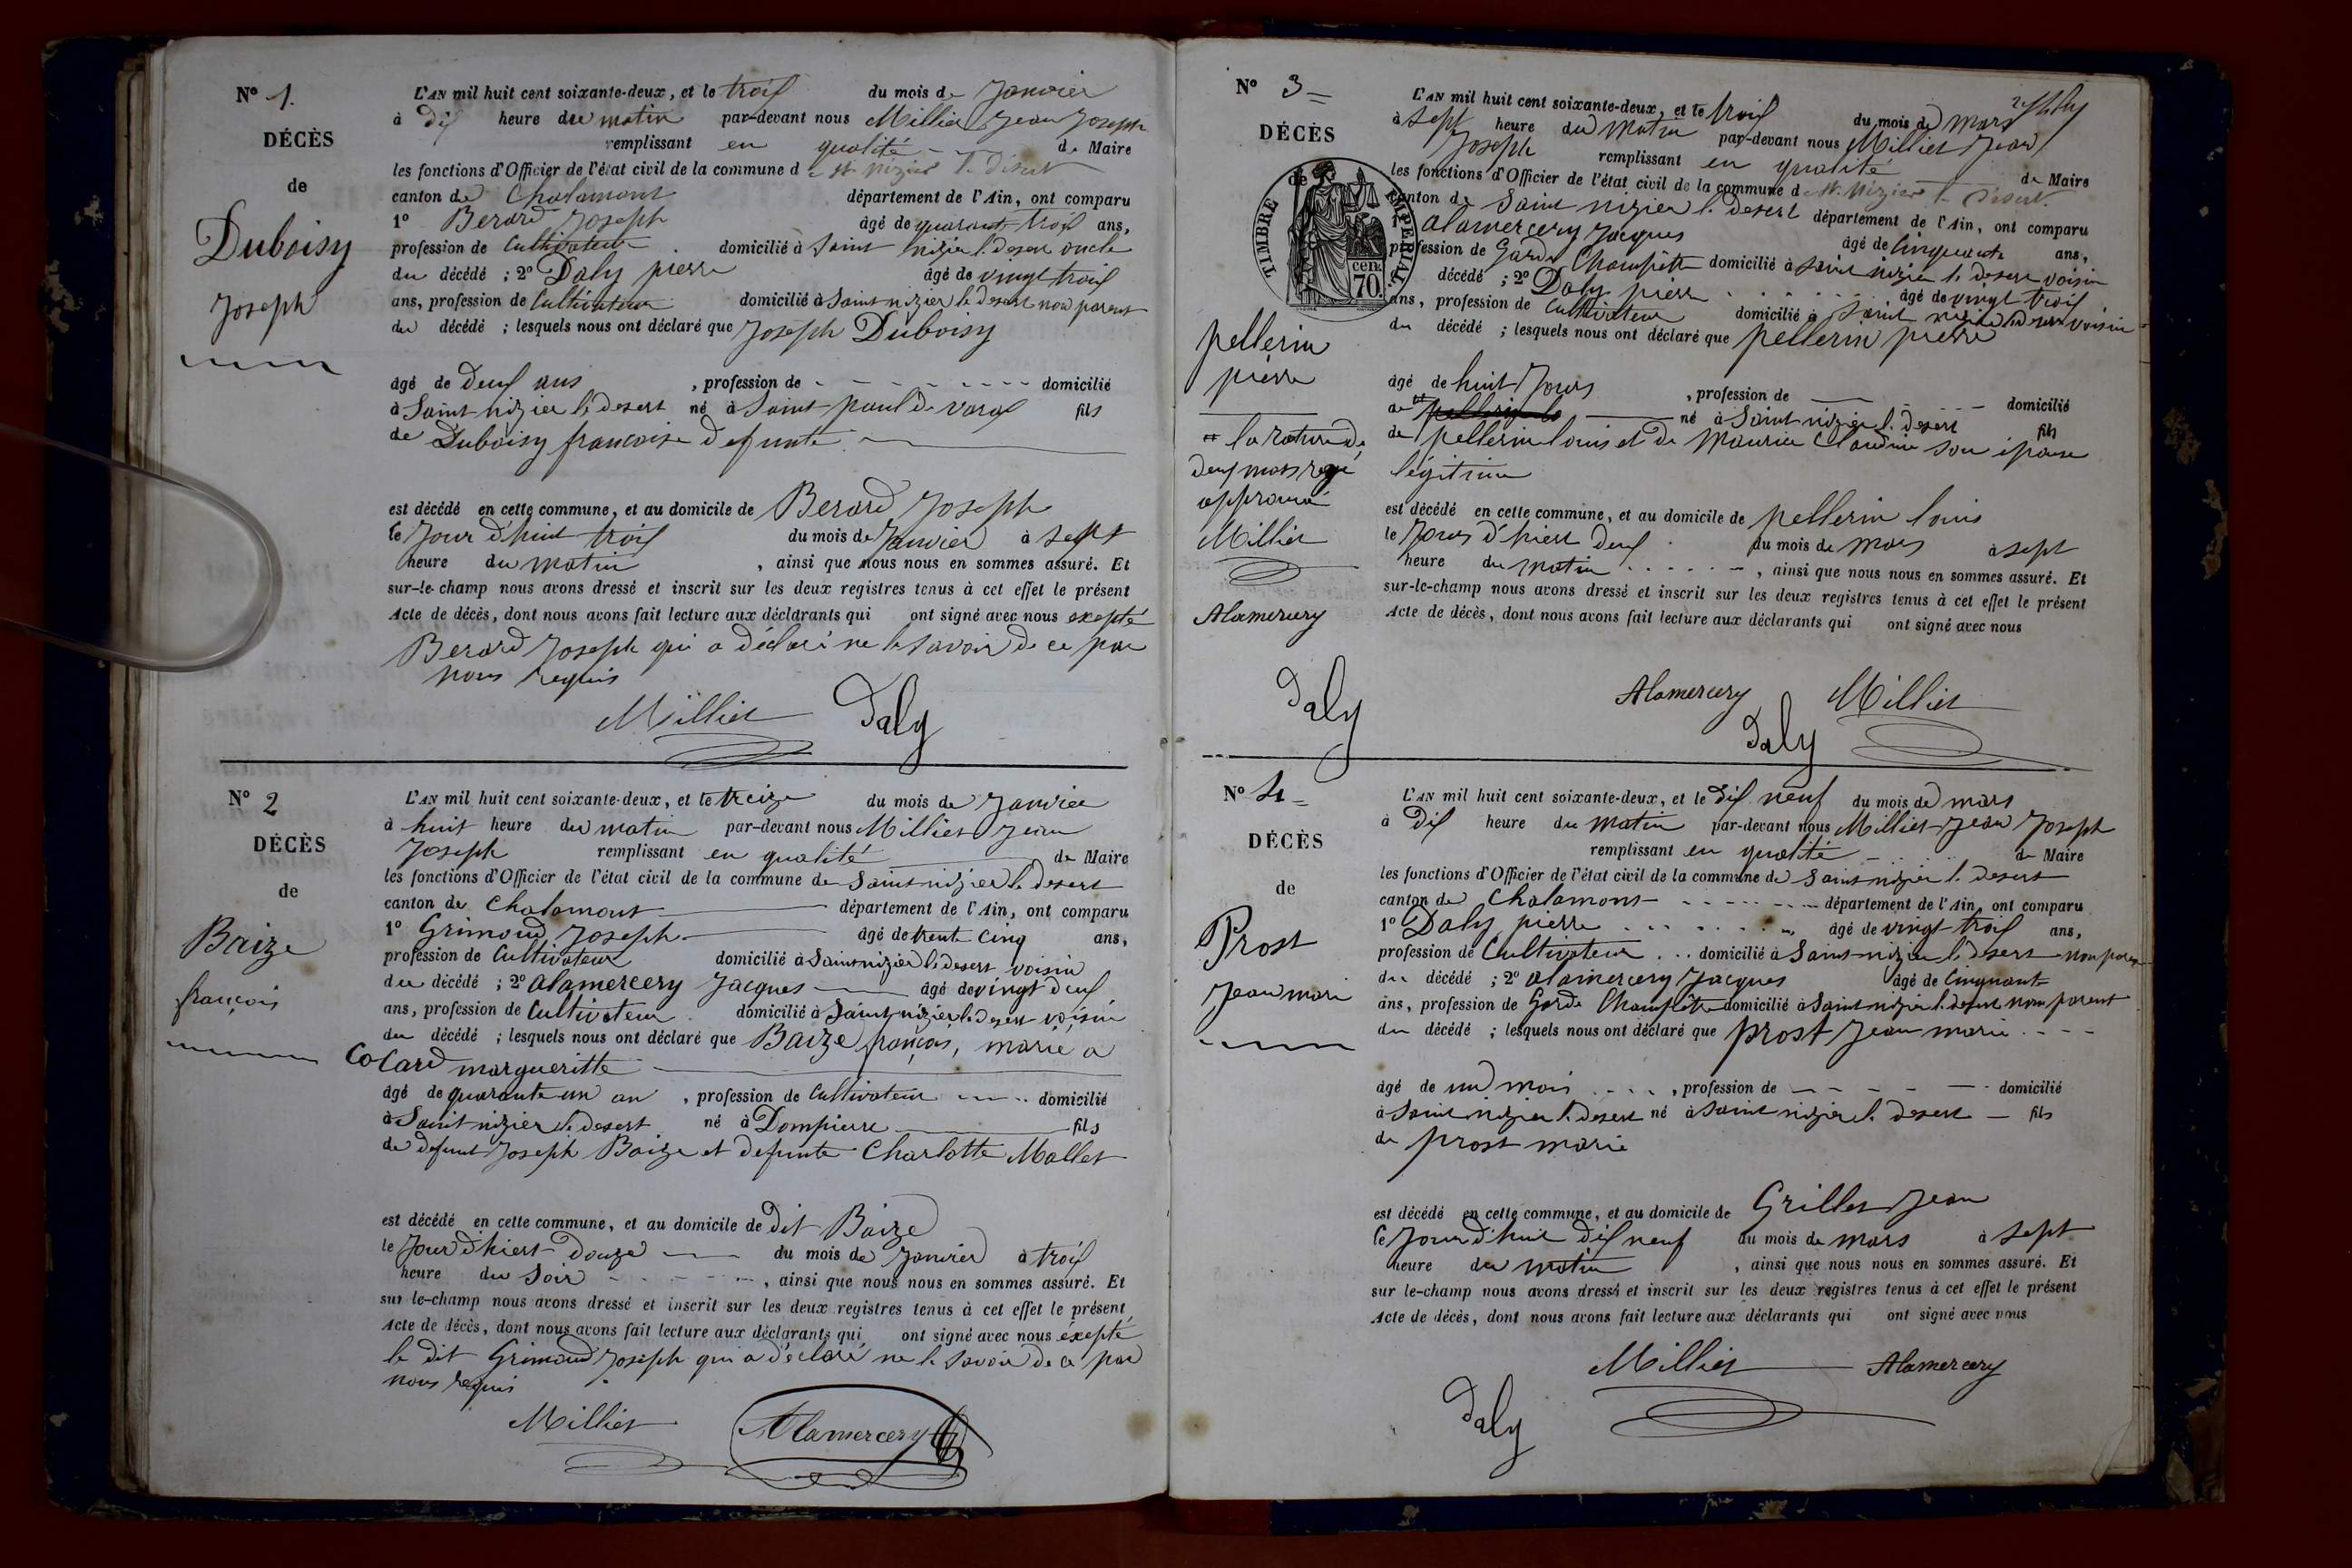 N° 1.
DÉCÈS
de
Duboisy
Joseph
L'AN mil huit cent soixante-deux, et le trois du mois de Janvier
à dix heure du matin par-devant nous Milliet Jean Joseph
remplissant en qualité de Maire
les fonctions d'Officier de l'état civil de la commune de St. Nizier le Désert
canton de Chalamont département de l'Ain, ont comparu
1° Berard Joseph âgé de quarante trois ans,
profession de Cultivateur domicilié à Saint Nizier le desert oncle
du décédé ; 2° Daly pierre âgé de vingt trois
ans, profession de Cultivateur domicilié à Saint nizier le desert non parent
du décédé ; lesquels nous ont déclaré que Joseph Duboisy
âgé de deux ans , profession de domicilié
à Saint nizier le desert né à Saint paul de varax fils
de Duboisy francoise defunte
est décédé en cette commune, et au domicile de Berard Joseph
le Jour d'huit trois du mois de Janvier à sept
heure du matin , ainsi que nous nous en sommes assuré. Et
sur-le-champ nous avons dressé et inscrit sur les deux registres tenus à cet effet le présent
Acte de décès, dont nous avons fait lecture aux déclarants qui ont signé avec nous exepté
Berard Joseph qui a déclaré ne le savoir de ce par
nous requis
Milliet Daly
N° 2
DÉCÈS
de
Baize
françois
L'AN mil huit cent soixante-deux, et le treize du mois de Janvier
à huit heure du matin par-devant nous Milliet Jean
Joseph remplissant en qualité de Maire
les fonctions d'Officier de l'état civil de la commune de Saint nizier le desert
canton de Chalamont département de l'Ain, ont comparu
1° Grimoud Joseph âgé de trente cinq ans,
profession de Cultivateur domicilié à Saint nizier le desert voisin
du décédé ; 2° alamercery Jacques âgé de vingt deux
ans, profession de Cultivateur domicilié à Saint nizier le desert voisin
du décédé ; lesquels nous ont déclaré que Baize françois, marié a
Colard margueritte
âgé de quarante un an , profession de Cultivateur domicilié
à Saint nizier le desert né à Dompierre fils
de defunt Joseph Baize et defunte Charlotte Mallet
est décédé en cette commune, et au domicile de dit Baize
le Jour d'hiert douze du mois de Janvier à trois
heure du Soir , ainsi que nous nous en sommes assuré. Et
sur le-champ nous avons dressé et inscrit sur les deux registres tenus à cet effet le présent
Acte de décès, dont nous avons fait lecture aux déclarants qui ont signé avec nous éxepté
le dit Grimoud Joseph qui a déclaré ne le savoir de ce par
nous requis
Milliet Alamercery
N° 3
DÉCÈS
de
TIMBRE IMPERIAL
cen.
70.
pellerin
pierre
la rature de
deux mots rayé
approuvé
Milliet
Alamercery
Daly
L'AN mil huit cent soixante-deux, et le trois du mois de mars
à sept heure du matin par-devant nous Milliet Jean
Joseph remplissant en qualité de Maire
les fonctions d'Officier de l'état civil de la commune de St. Nizier le Désert
canton de Saint nizier le desert département de l'Ain, ont comparu
1° alamercery Jacques âgé de Cinquante ans,
profession de Garde Champêtre domicilié à Saint nizier le desert voisin
décédé ; 2° Daly pierre âgé de vingt trois
ans, profession de Cultivateur domicilié à Saint nizier le desert voisin
du décédé ; lesquels nous ont déclaré que pellerin pierre
âgé de huit Jours , profession de domicilié
né à Saint nizier le desert fils
de pellerin louis et de Maurice Claudine son épouse
légitime
est décédé en cette commune, et au domicile de pellerin louis
le Jours d'hiert deux du mois de mars à sept
heure du matin , ainsi que nous nous en sommes assuré. Et
sur-le-champ nous avons dressé et inscrit sur les deux registres tenus à cet effet le présent
Acte de décès, dont nous avons fait lecture aux déclarants qui ont signé avec nous
Alamercery Milliet
Daly
N° 4
DÉCÈS
de
Prost
Jean marie
L'AN mil huit cent soixante-deux, et le dix neuf du mois de mars
à dix heure du matin par-devant nous Milliet Jean Joseph
remplissant en qualité de Maire
les fonctions d'Officier de l'état civil de la commune de Saint nizier le desert
canton de Chalamont département de l'Ain, ont comparu
1° Daly pierre âgé de vingt trois ans,
profession de Cultivateur domicilié à Saint nizier le desert non parent
du décédé ; 2° alamercery Jacques âgé de Cinquante
ans, profession de Garde Champêtre domicilié à Saint nizier le desert non parent
du décédé ; lesquels nous ont déclaré que prost Jean marie
âgé de un mois , profession de domicilié
à Saint nizier le desert né à Saint nizier le desert fils
de prost marie
est décédé en cette commune, et au domicile de Grillet Jean
le Jour d'huit dix neuf du mois de mars à sept
heure du matin , ainsi que nous nous en sommes assuré. Et
sur le-champ nous avons dressé et inscrit sur les deux registres tenus à cet effet le présent
Acte de décès, dont nous avons fait lecture aux déclarants qui ont signé avec nous
Milliet Alamercery
Daly